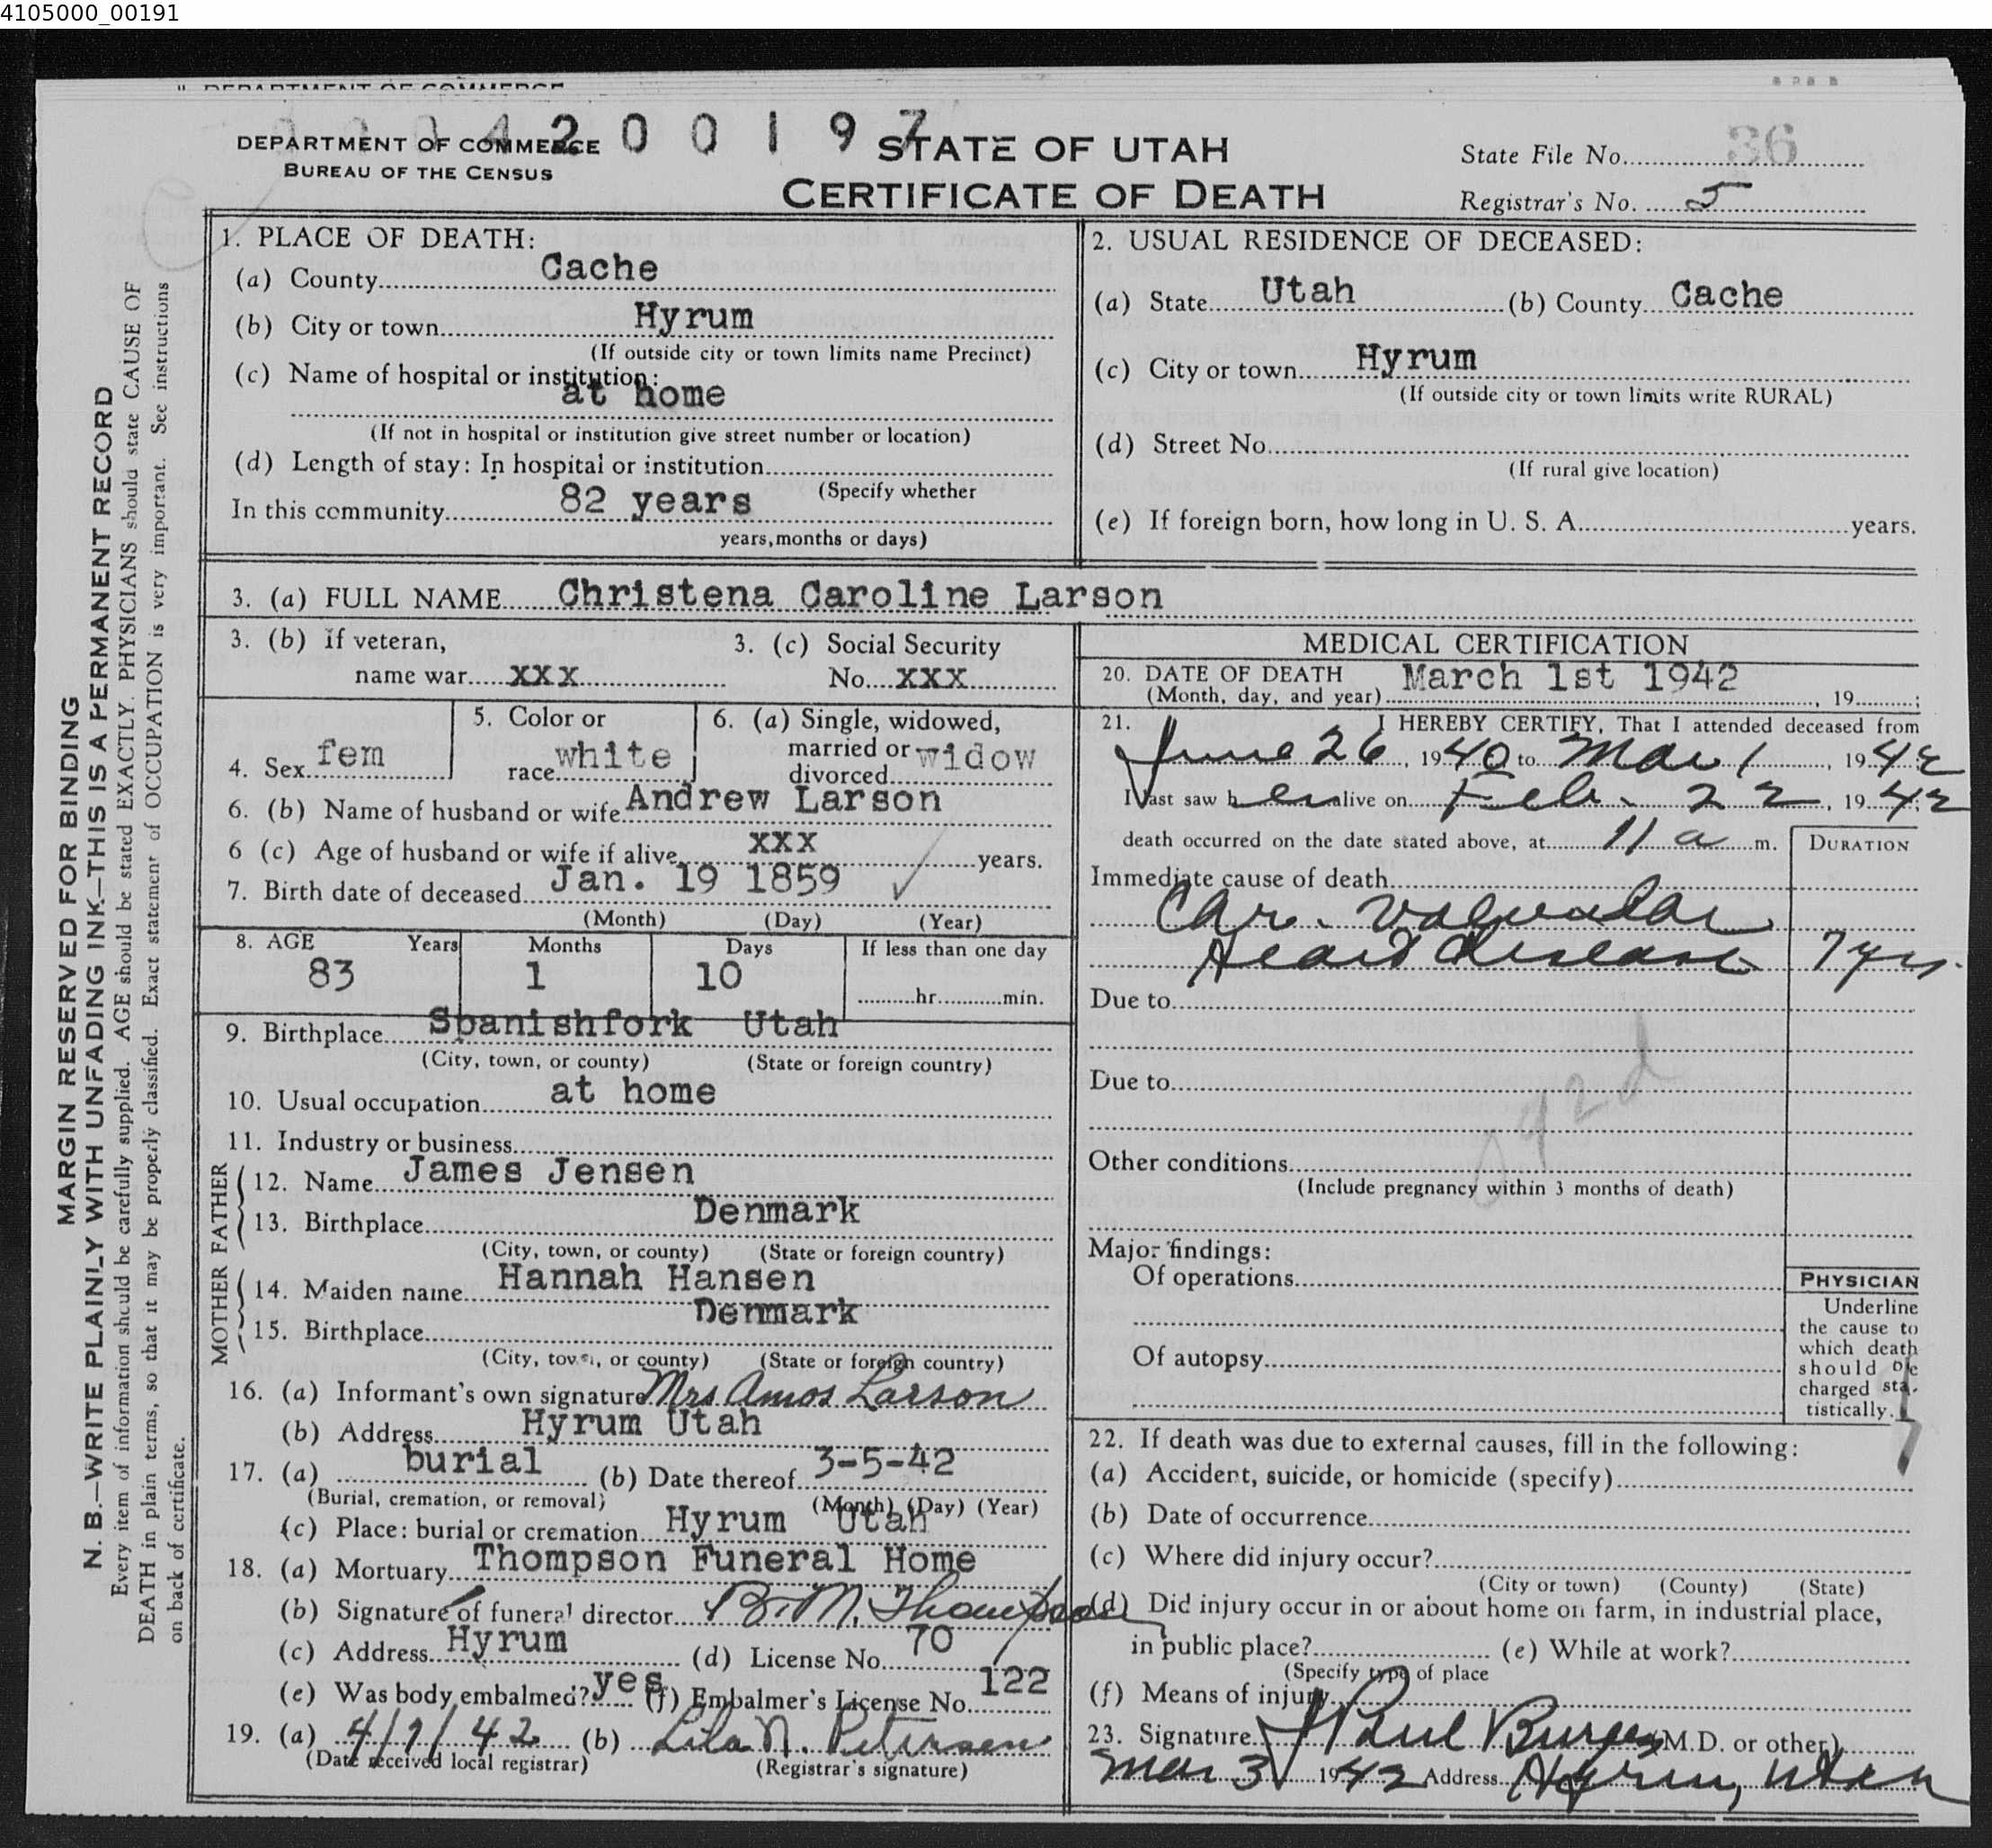 4105000_00191
DEPARTMENT OF COMMERCE
BUREAU OF THE CENSUS
4 2 0 0 1 9 7
STATE OF UTAH
CERTIFICATE OF DEATH
State File No. 36
Registrar's No. 5
MARGIN RESERVED FOR BINDING
N. B.—WRITE PLAINLY WITH UNFADING INK—THIS IS A PERMANENT RECORD
Every item of information should be carefully supplied. AGE should be stated EXACTLY. PHYSICIANS should state CAUSE OF
DEATH in plain terms, so that it may be properly classified. Exact statement of OCCUPATION is very important. See instructions
on back of certificate.
1. PLACE OF DEATH:
(a) County Cache
(b) City or town Hyrum
(If outside city or town limits name Precinct)
(c) Name of hospital or institution:
at home
(If not in hospital or institution give street number or location)
(d) Length of stay: In hospital or institution
(Specify whether
In this community 82 years
years, months or days)
2. USUAL RESIDENCE OF DECEASED:
(a) State Utah (b) County Cache
(c) City or town Hyrum
(If outside city or town limits write RURAL)
(d) Street No.
(If rural give location)
(e) If foreign born, how long in U. S. A. years.
3. (a) FULL NAME Christena Caroline Larson
3. (b) If veteran,
name war xxx
3. (c) Social Security
No. xxx
4. Sex fem
5. Color or
race white
6. (a) Single, widowed,
married or
divorced widow
6. (b) Name of husband or wife Andrew Larson
6 (c) Age of husband or wife if alive xxx years.
7. Birth date of deceased Jan. 19 1859
(Month) (Day) (Year)
8. AGE Years Months Days If less than one day
83 1 10
hr. min.
9. Birthplace Spanishfork Utah
(City, town, or county) (State or foreign country)
10. Usual occupation at home
11. Industry or business
FATHER
12. Name James Jensen
13. Birthplace Denmark
(City, town, or county) (State or foreign country)
MOTHER
14. Maiden name Hannah Hansen
15. Birthplace Denmark
(City, town, or county) (State or foreign country)
16. (a) Informant's own signature Mrs Amos Larson
(b) Address Hyrum Utah
17. (a) burial (b) Date thereof 3-5-42
(Burial, cremation, or removal) (Month) (Day) (Year)
(c) Place: burial or cremation Hyrum Utah
18. (a) Mortuary Thompson Funeral Home
(b) Signature of funeral director B. M. Thompson
(c) Address Hyrum (d) License No. 70
(e) Was body embalmed? yes (f) Embalmer's License No. 122
19. (a) 4/1/42 (b) Lila N. Petersen
(Date received local registrar) (Registrar's signature)
MEDICAL CERTIFICATION
20. DATE OF DEATH March 1st 1942
(Month, day, and year) , 19 ;
21. I HEREBY CERTIFY, That I attended deceased from
June 26, 1940 to Mar 1, 1942
I last saw h er alive on Feb. 22, 1942;
death occurred on the date stated above, at 11 a m.
DURATION
Immediate cause of death
Chr. Valvular
Heart disease 7 yrs.
Due to
Due to
92d
Other conditions
(Include pregnancy within 3 months of death)
Major findings:
Of operations
Of autopsy
PHYSICIAN
Underline
the cause to
which death
should be
charged sta-
tistically.
22. If death was due to external causes, fill in the following:
(a) Accident, suicide, or homicide (specify)
(b) Date of occurrence
(c) Where did injury occur?
(City or town) (County) (State)
(d) Did injury occur in or about home on farm, in industrial place,
in public place? (e) While at work?
(Specify type of place
(f) Means of injury
23. Signature J Paul Burgess (M.D. or other)
Mar 3 1942 Address Hyrum, Utah